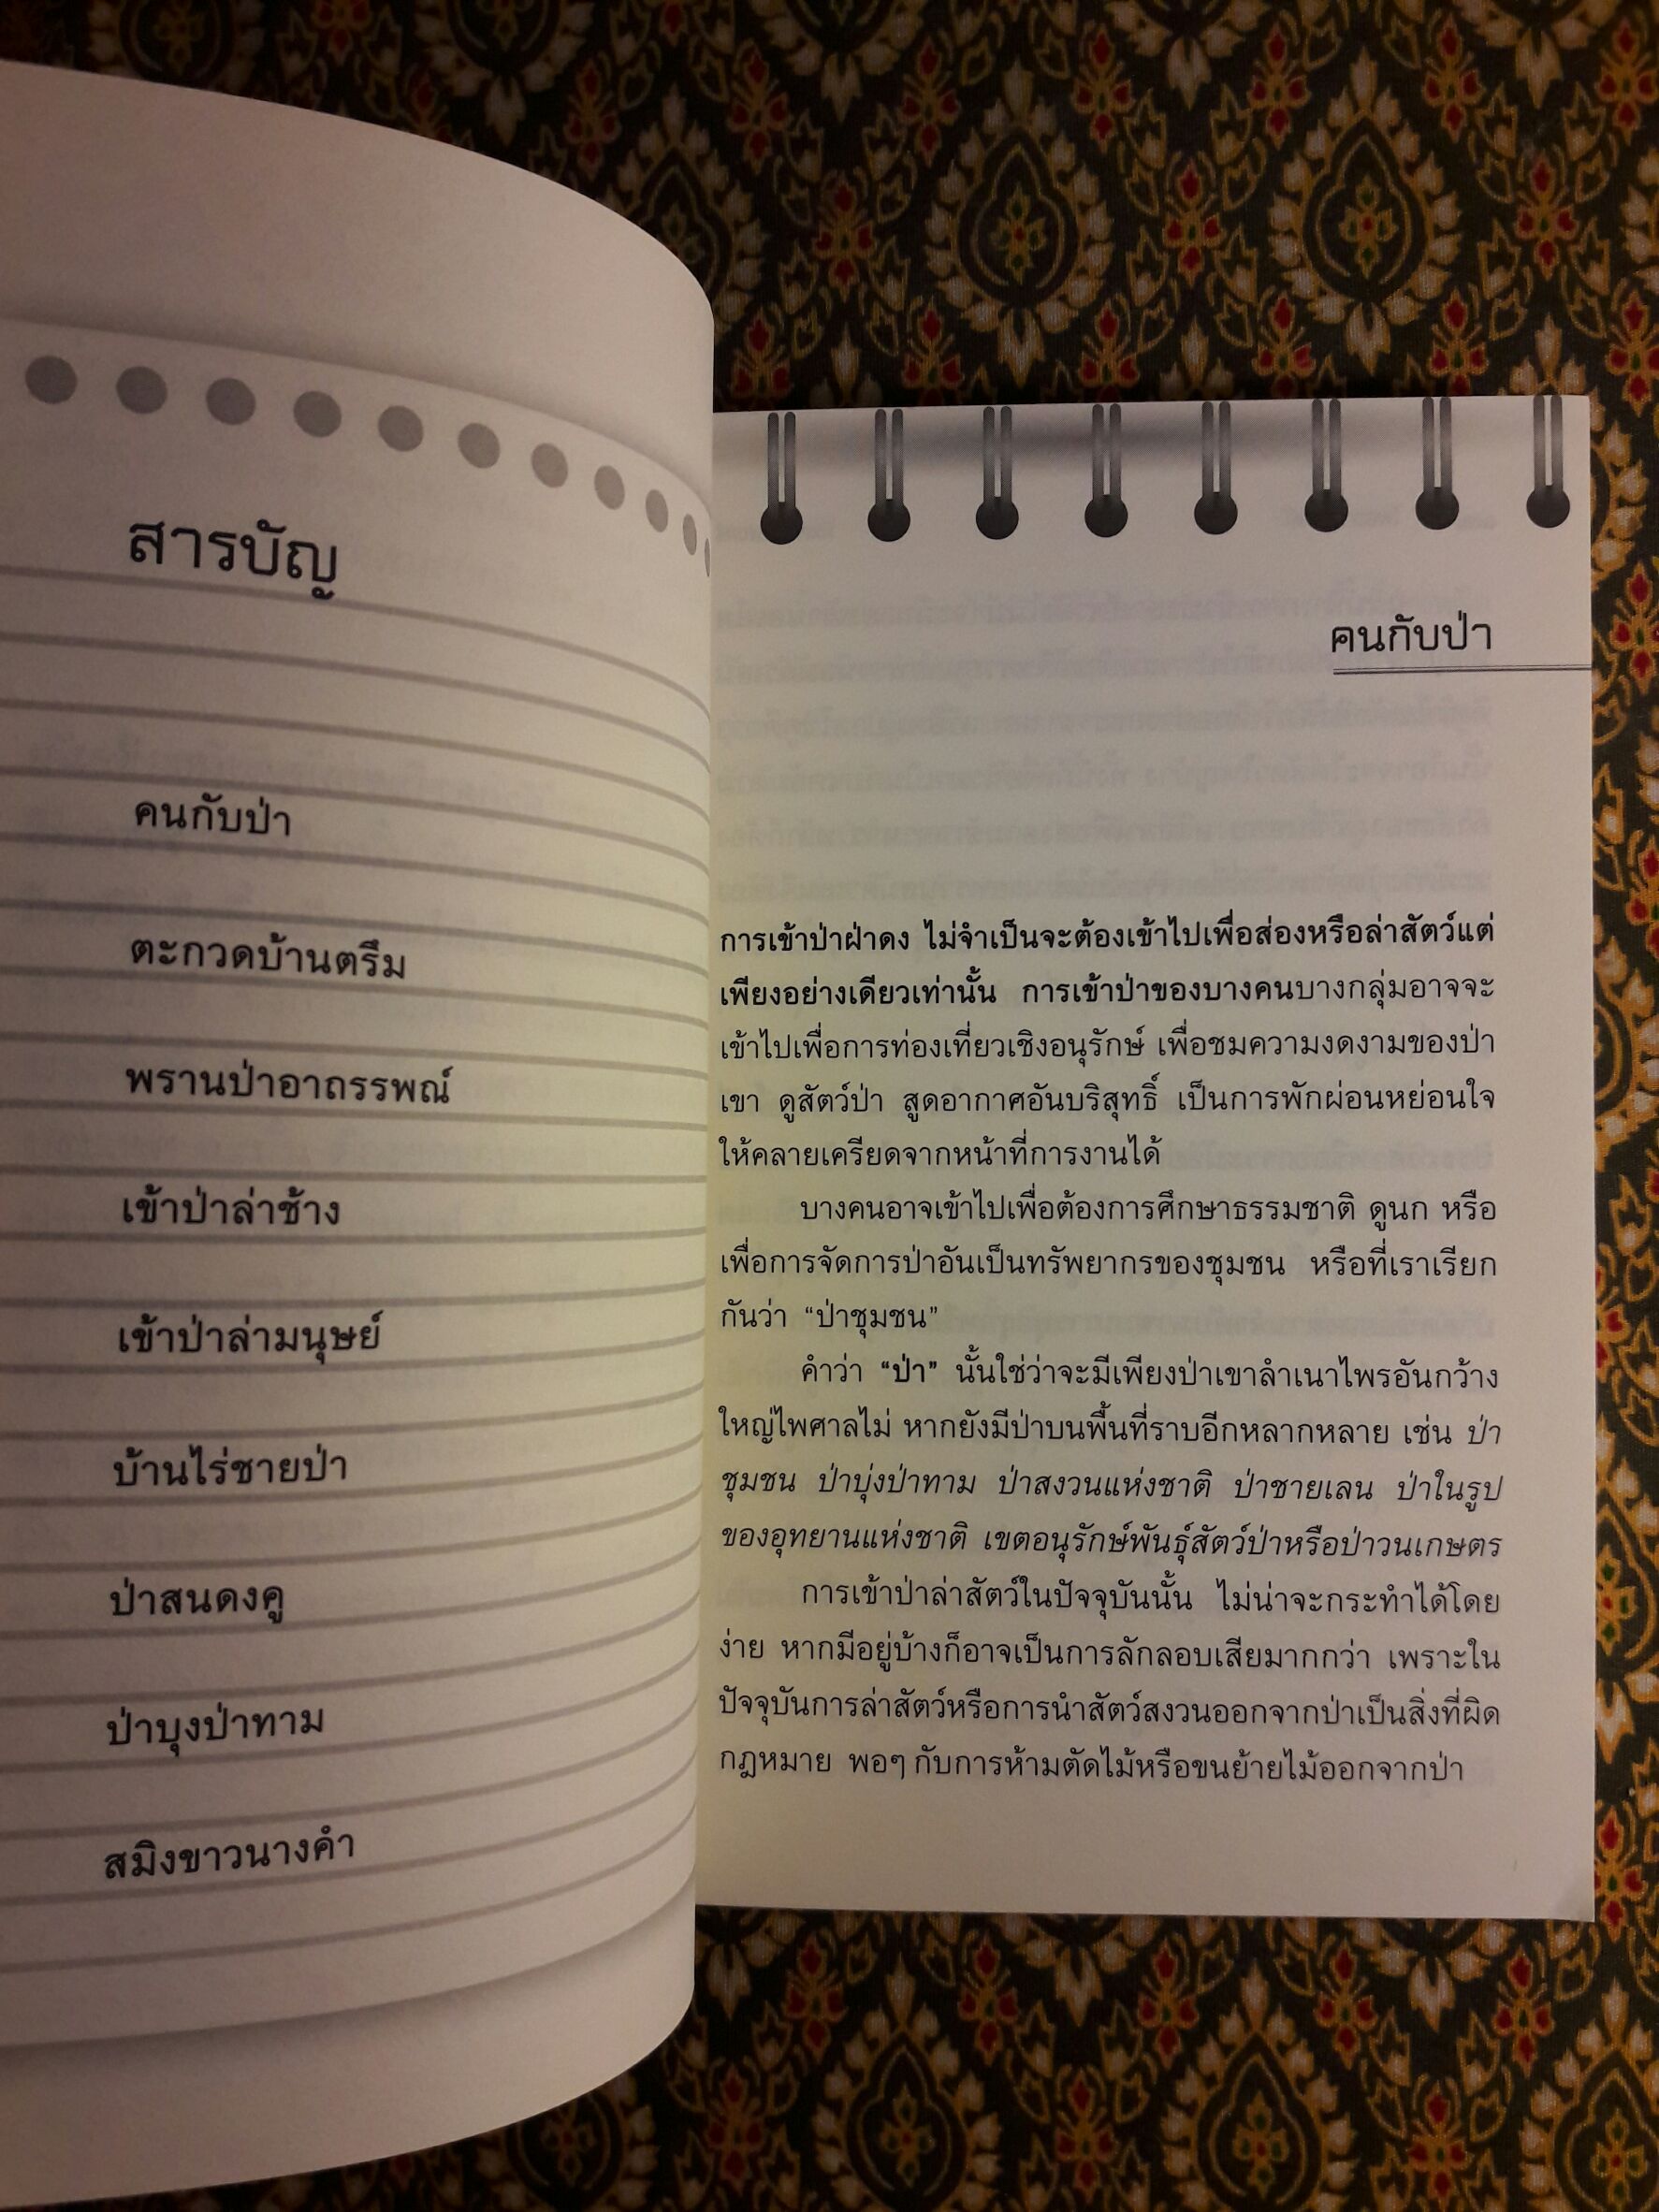 สารบัญ
คนกับป่า
ตะกวดบ้านตรึม
พรานป่าอาถรรพณ์
เข้าป่าล่าช้าง
เข้าป่าล่ามนุษย์
บ้านไร่ชายป่า
ป่าสนดงคู
ป่าบุงป่าทาม
สมิงขาวนางคำ
คนกับป่า
การเข้าป่าฝ่าดง ไม่จำเป็นจะต้องเข้าไปเพื่อส่องหรือล่าสัตว์แต่
เพียงอย่างเดียวเท่านั้น การเข้าป่าของบางคนบางกลุ่มอาจจะ
เข้าไปเพื่อการท่องเที่ยวเชิงอนุรักษ์ เพื่อชมความงดงามของป่า
เขา ดูสัตว์ป่า สูดอากาศอันบริสุทธิ์ เป็นการพักผ่อนหย่อนใจ
ให้คลายเครียดจากหน้าที่การงานได้
บางคนอาจเข้าไปเพื่อต้องการศึกษาธรรมชาติ ดูนก หรือ
เพื่อการจัดการป่าอันเป็นทรัพยากรของชุมชน หรือที่เราเรียก
กันว่า “ป่าชุมชน”
คำว่า “ป่า” นั้นใช่ว่าจะมีเพียงป่าเขาลำเนาไพรอันกว้าง
ใหญ่ไพศาลไม่ หากยังมีป่าบนพื้นที่ราบอีกหลากหลาย เช่น ป่า
ชุมชน ป่าบุ่งป่าทาม ป่าสงวนแห่งชาติ ป่าชายเลน ป่าในรูป
ของอุทยานแห่งชาติ เขตอนุรักษ์พันธุ์สัตว์ป่าหรือป่าวนเกษตร
การเข้าป่าล่าสัตว์ในปัจจุบันนั้น ไม่น่าจะกระทำได้โดย
ง่าย หากมีอยู่บ้างก็อาจเป็นการลักลอบเสียมากกว่า เพราะใน
ปัจจุบันการล่าสัตว์หรือการนำสัตว์สงวนออกจากป่าเป็นสิ่งที่ผิด
กฎหมาย พอๆ กับการห้ามตัดไม้หรือขนย้ายไม้ออกจากป่า